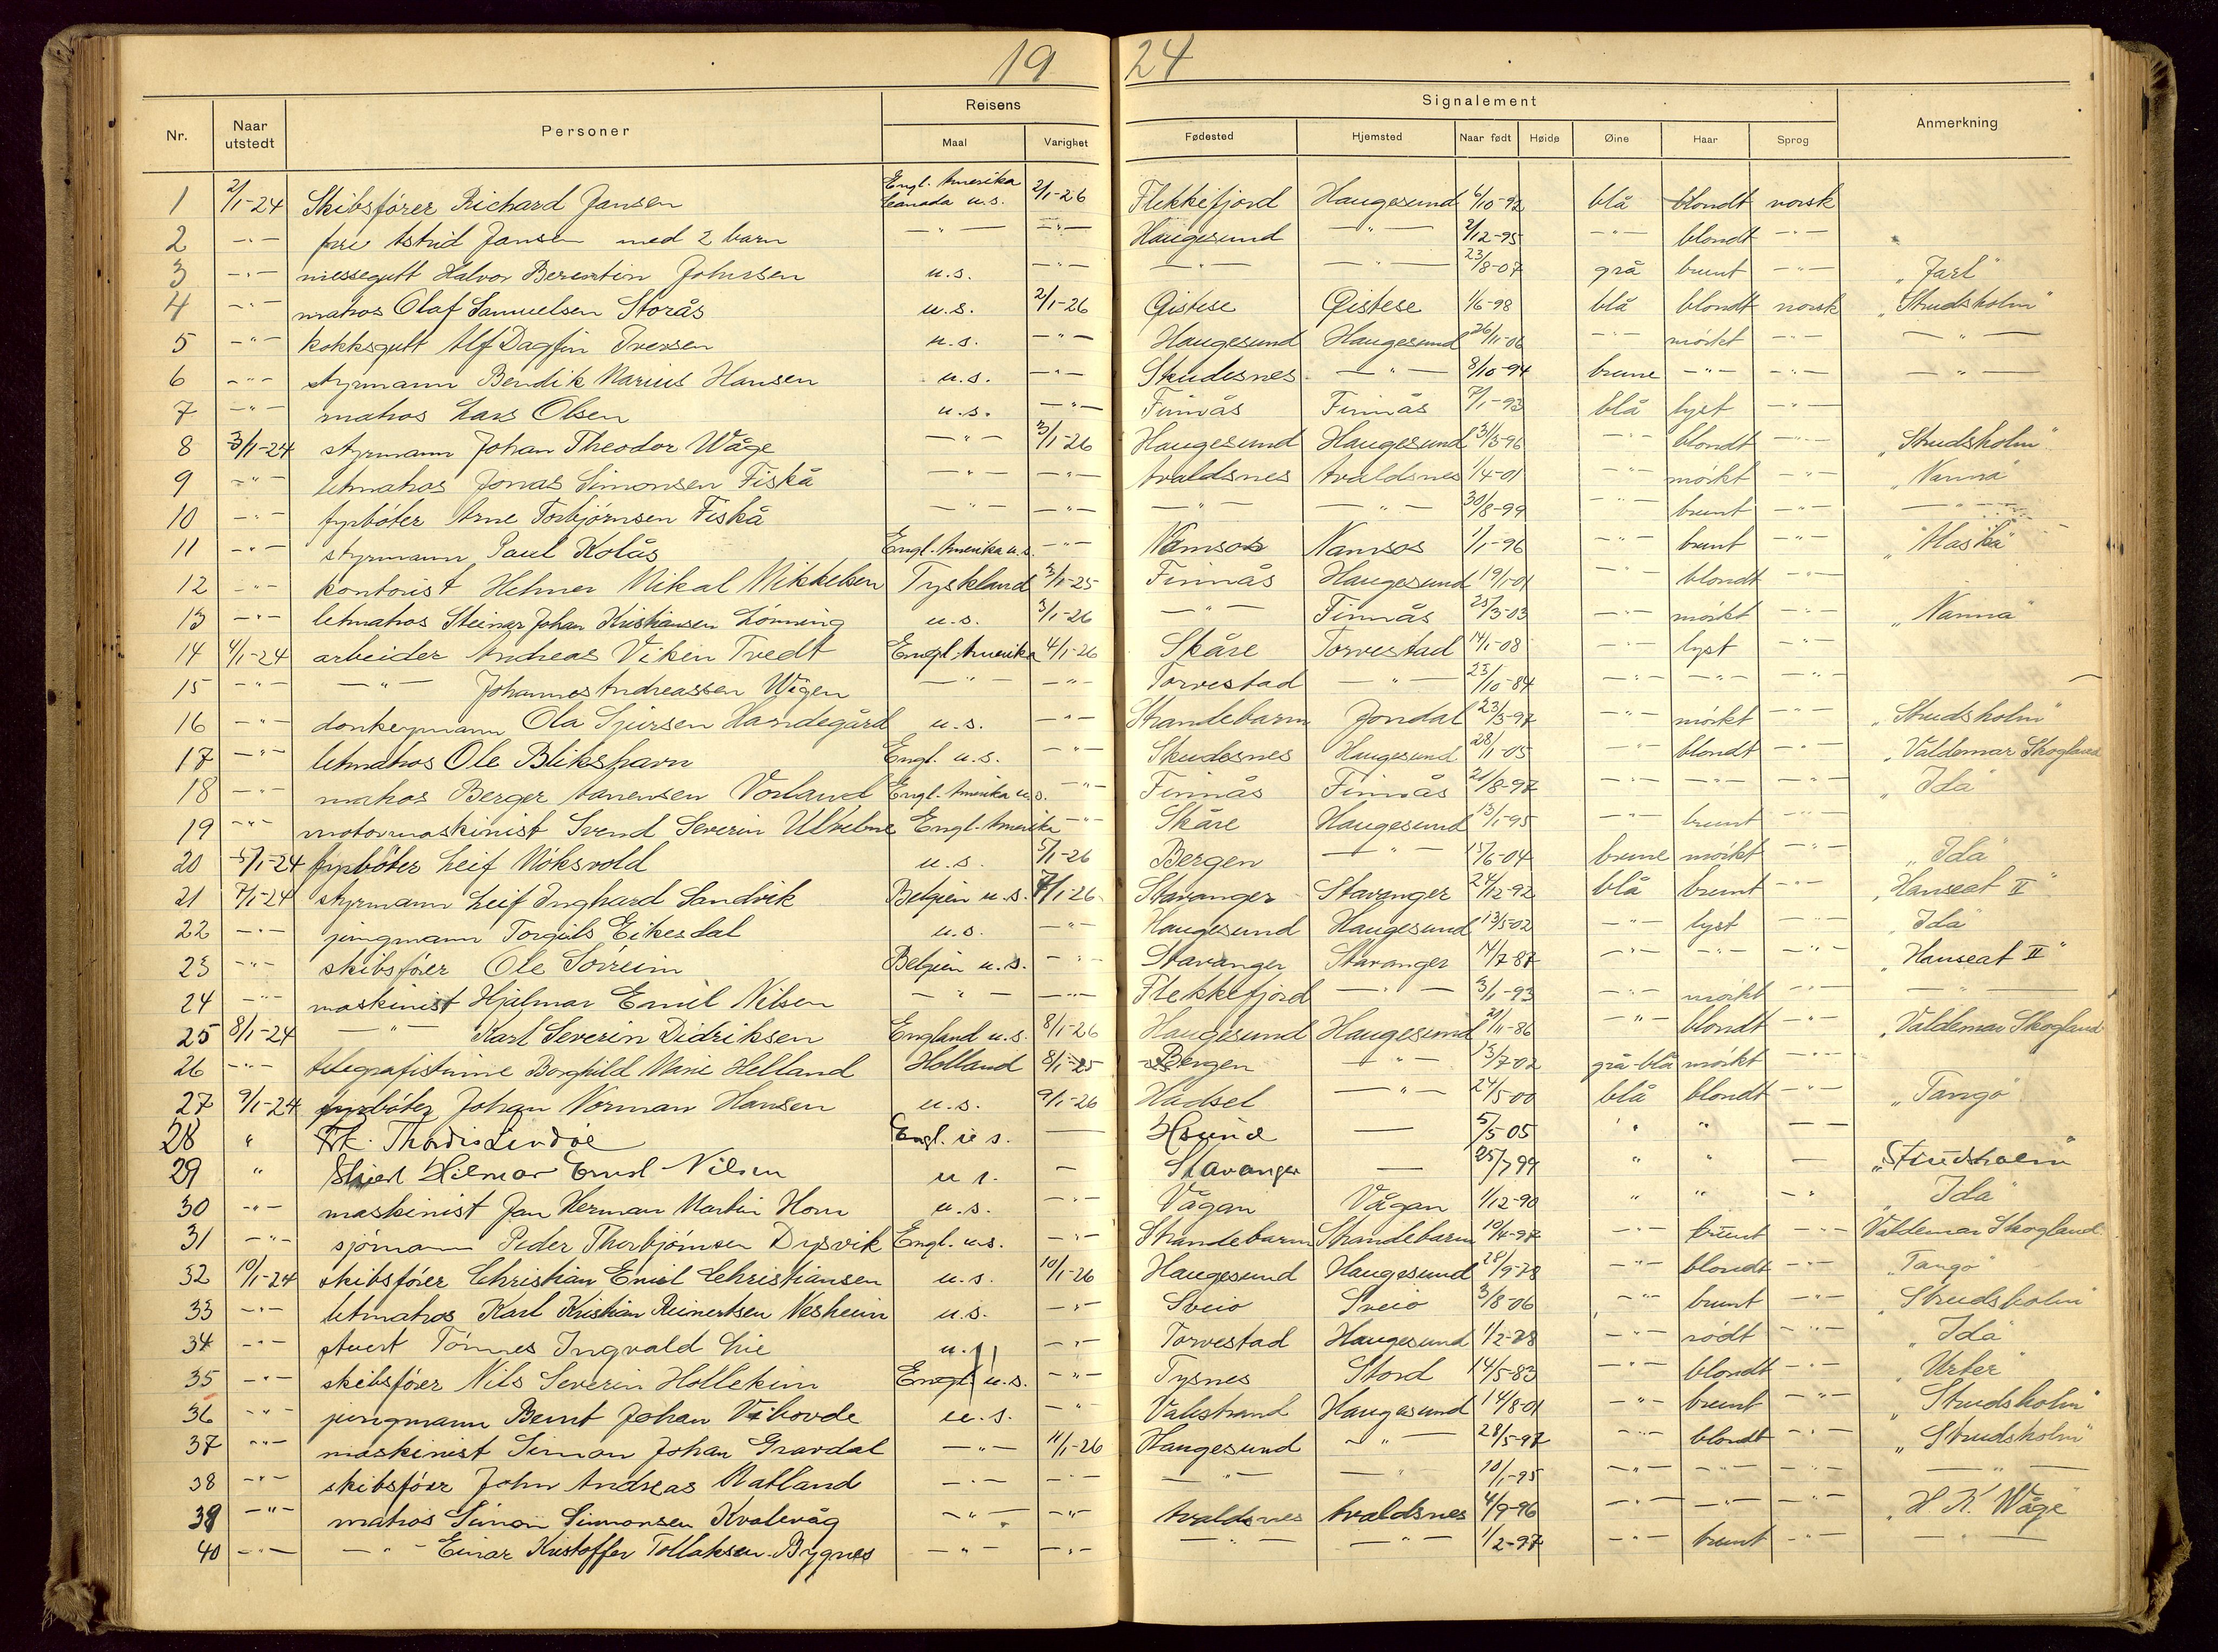 19 24
Nr. Naar utstedt Personer Reisens Maal Varighet Signalement Fødested Hjemsted Naar født Høide Øine Haar Sprog Anmerkning
1 2/1-24 Skibsfører Richard Jansen Engl. Amerika Canada u.s. 2/1-26 Flekkefjord Haugesund 6/10-92 blå blondt norsk
2 -"- fru Astrid Jansen med 2 barn -"- -"- Haugesund -"- 2/12-95 -"- blondt -"-
3 -"- messegutt Halvor Berentin Johnsen u.s. -"- -"- -"- 23/8-07 grå brunt -"- "Jarl"
4 -"- matros Olaf Samuelsen Storås u.s. 2/1-26 Øistese Øistese 1/6-98 blå blondt norsk "Strudsholm"
5 -"- kokksgutt Alf Dagfin Iversen u.s. -"- Haugesund Haugesund 26/11-06 -"- mörkt -"- -"-
6 -"- styrmann Bendik Marius Hansen u.s. -"- Skudesnes -"- 8/10-94 brune -"- -"- -"-
7 -"- matros Lars Olsen u.s. -"- Finnås Finnås 7/1-93 blå lyst -"-
8 3/1-24 styrmann Johan Theodor Våge -"- 3/1-26 Haugesund Haugesund 31/3-96 -"- blondt -"- "Strudsholm"
9 -"- letmatros Jonas Simonsen Fiskå -"- -"- Avaldsnes Avaldsnes 1/4-01 -"- mörkt -"- "Nanna"
10 -"- fyrböter Arne Torbjørnsen Fiskå -"- -"- -"- -"- 30/8-99 -"- brunt -"- -"-
11 -"- styrmann Paul Kolås Engl. Amerika u.s. -"- Namsos Namsos 1/1-96 -"- brunt -"- "Alaska"
12 -"- kontorist Helmer Mikal Mikkelsen Tyskland 3/1-25 Finnås Haugesund 19/1-01 -"- blondt -"-
13 -"- letmatros Steinar Johan Kristiansen Lønning u.s. 3/1-26 -"- Finnås 25/3-03 -"- mörkt -"- "Nanna"
14 4/1-24 arbeider Andreas Viken Tvedt Engl. Amerika 4/1-26 Skåre Torvestad 14/1-08 -"- lyst -"-
15 -"- -"- Johannes Andreassen Vigen -"- -"- Torvestad -"- 23/10-84 -"- -"- -"-
16 -"- donkeymann Ola Sjursen Handegård u.s. -"- Strandebarm Jondal 23/3-97 -"- mörkt -"- "Strudsholm"
17 -"- letmatros Ole Blikshavn Engl. u.s. -"- Skudesnes Haugesund 28/1-05 -"- blondt -"- "Valdemar Skogland
18 -"- matros Berger Vorland Engl. Amerika u.s. -"- Finnås Finnås 20/8-97 -"- -"- -"- "Ida"
19 -"- motormaskinist Svend Severin Engl. Amerika -"- Skåre Haugesund 13/1-95 -"- brunt -"-
20 5/1-24 fyrböter Leif Möksvold u.s. 5/1-26 Bergen -"- 15/6-04 brune mörkt -"- "Ida"
21 7/1-24 styrmann Leif Inghard Sandvik Belgien u.s. 7/1-26 Stavanger Stavanger 24/12-92 blå brunt -"- "Hanseat II"
22 -"- jungmann Torgils Eikesdal u.s. -"- Haugesund Haugesund 13/5-02 -"- lyst -"- "Ida"
23 -"- skibsfører Ole Sörreim Belgien u.s. -"- Stavanger Stavanger 14/7-87 -"- -"- -"- "Hanseat II"
24 -"- maskinist Hjalmar Emil Nilsen -"- -"- Flekkefjord -"- 3/1-93 -"- mörkt -"- -"-
25 8/1-24 -"- Karl Severin Didriksen England u.s. 8/1-26 Haugesund Haugesund 2/11-86 -"- blondt -"- "Valdemar Skogland
26 -"- telegrafistinne Borghild Marie Helland Holland 8/1-25 Bergen -"- 13/7-02 grå-blå mörkt -"-
27 9/1-24 fyrböter Johan Norman Hansen u.s. 9/1-26 Hadsel -"- 24/5-00 blå blondt -"- "Tango"
28 " Frk. Thordis Lindöe Engl. u s. — Hsund — 5/5 05 " " —
29 " Stuert Hilmar Ernst Nilsen u s. — Stavanger — 25/7 99 " " — "Strudsholm
30 -"- maskinist Jan Herman Martin Horn u.s. -"- Vågan Vågan 1/12-90 " " -"- "Ida"
31 -"- sjömann Peder Thorbjørnsen Dysvik Engl. u.s. -"- Strandebarm Strandebarm 10/4-97 -"- brunt -"- Valdemar Skogland
32 10/1-24 skibsfører Christian Emil Christiansen u.s. 10/1-26 Haugesund Haugesund 28/9-78 -"- blondt -"- "Tango"
33 -"- letmatros Karl Kristian Reinertsen Vesheim u.s. -"- Sveio Sveio 3/8-06 -"- brunt -"- "Strudsholm"
34 -"- stuert Tönnes Ingvald Lie u. -"- Torvestad Haugesund 1/2-78 -"- rödt -"- "Ida"
35 -"- skibsfører Nils Severin Hollekim Engl. u.s. -"- Tysnes Stord 14/5-83 -"- blondt -"- "Urter"
36 -"- jungmann Bernt Johan Vibovde u.s. -"- Valestrand Haugesund 14/8-01 -"- brunt -"- "Strudsholm"
37 -"- maskinist Simon Johan Gravdal -"- 11/1-26 Haugesund -"- 28/5-97 -"- blondt -"- "Strudsholm"
38 -"- skibsfører John Andreas Matland -"- -"- -"- -"- 10/1-95 -"- -"- -"- -"-
39 -"- matros Simon Simonsen Kvalevåg -"- -"- Avaldsnes Avaldsnes 4/9-96 -"- -"- -"- "H K. Våge"
40 -"- -"- Einar Kristoffer Tollaksen Bygnes -"- -"- -"- -"- 1/2-97 brunt -"- -"-